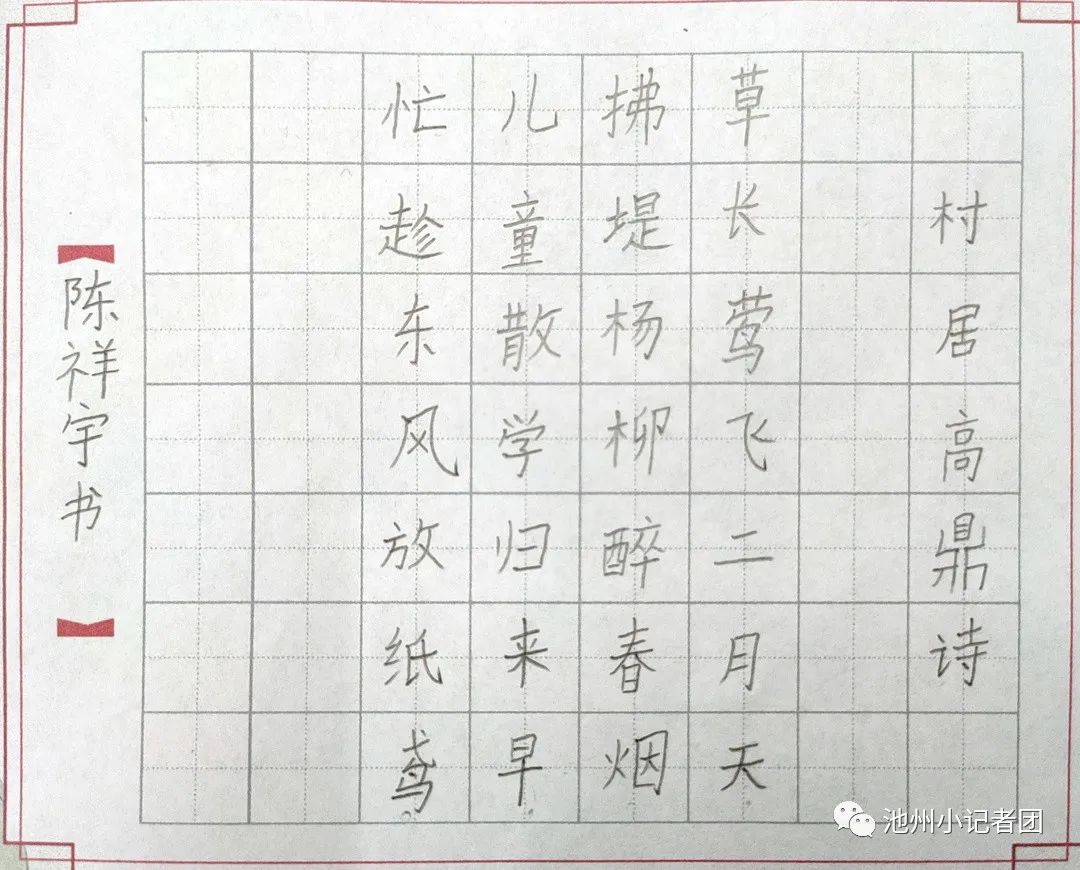 村居高鼎诗
草长莺飞二月天
拂堤杨柳醉春烟
儿童散学归来早
忙趁东风放纸鸢
陈祥宇书
池州小记者团